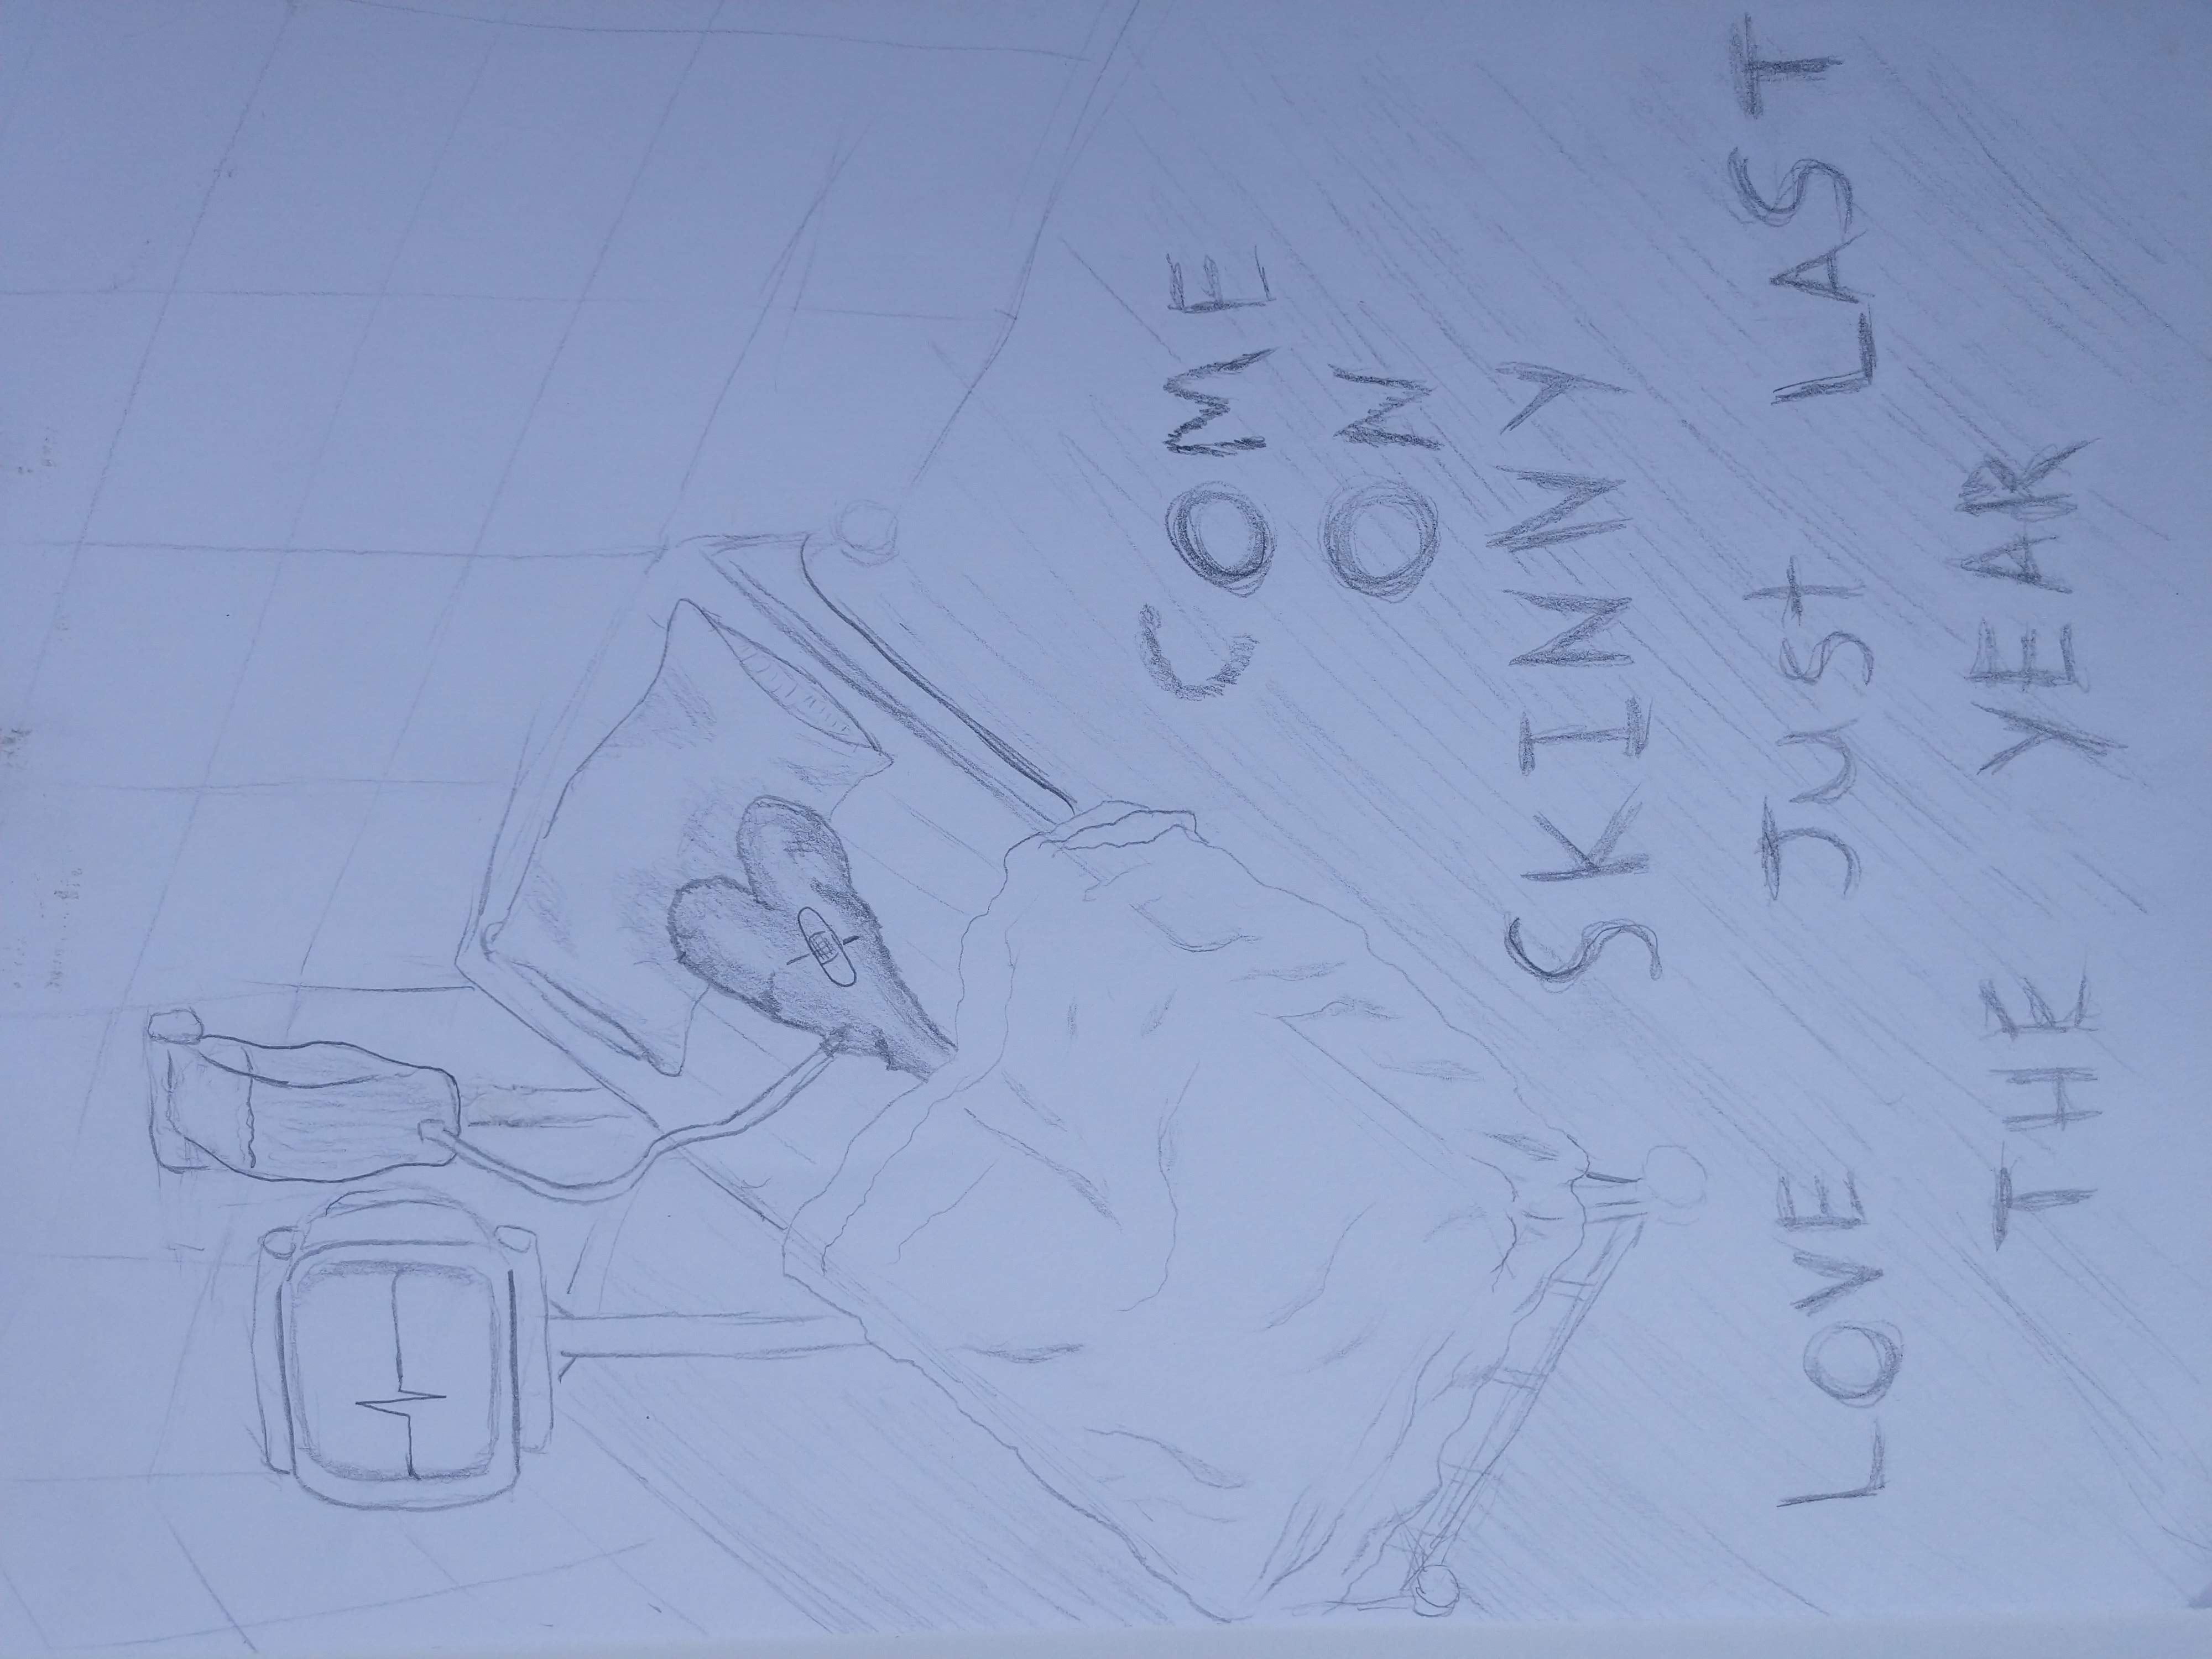 COME
ON
SKINNY
LOVE Just LAST
THE YEAR